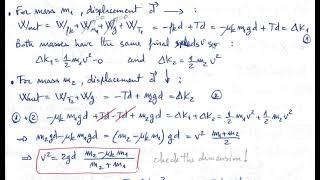 • For mass m₁, displacement d⃗ →:
W_net = W_fk + W_T₁ + W_N + W_g = -f_k d + Td = -μ_k m₁gd + Td = ΔK₁ ①
Both masses have the same final speeds v so:
ΔK₁ = ½ m₁v² - 0 and ΔK₂ = ½ m₂v²
• For mass m₂, displacement d⃗ ↓:
W_net = W_T₂ + W_g = -Td + m₂gd = ΔK₂ ②
①+② -μ_k m₁gd + Td - Td + m₂gd = ΔK₁ + ΔK₂ = ½ m₁v² + ½ m₂v²
⇒ m₂gd - μ_k m₁gd = (m₂ - μ_k m₁) gd = v² (m₁+m₂)/2
⇒ v² = 2gd (m₂ - μ_k m₁)/(m₂ + m₁) check the dimension!